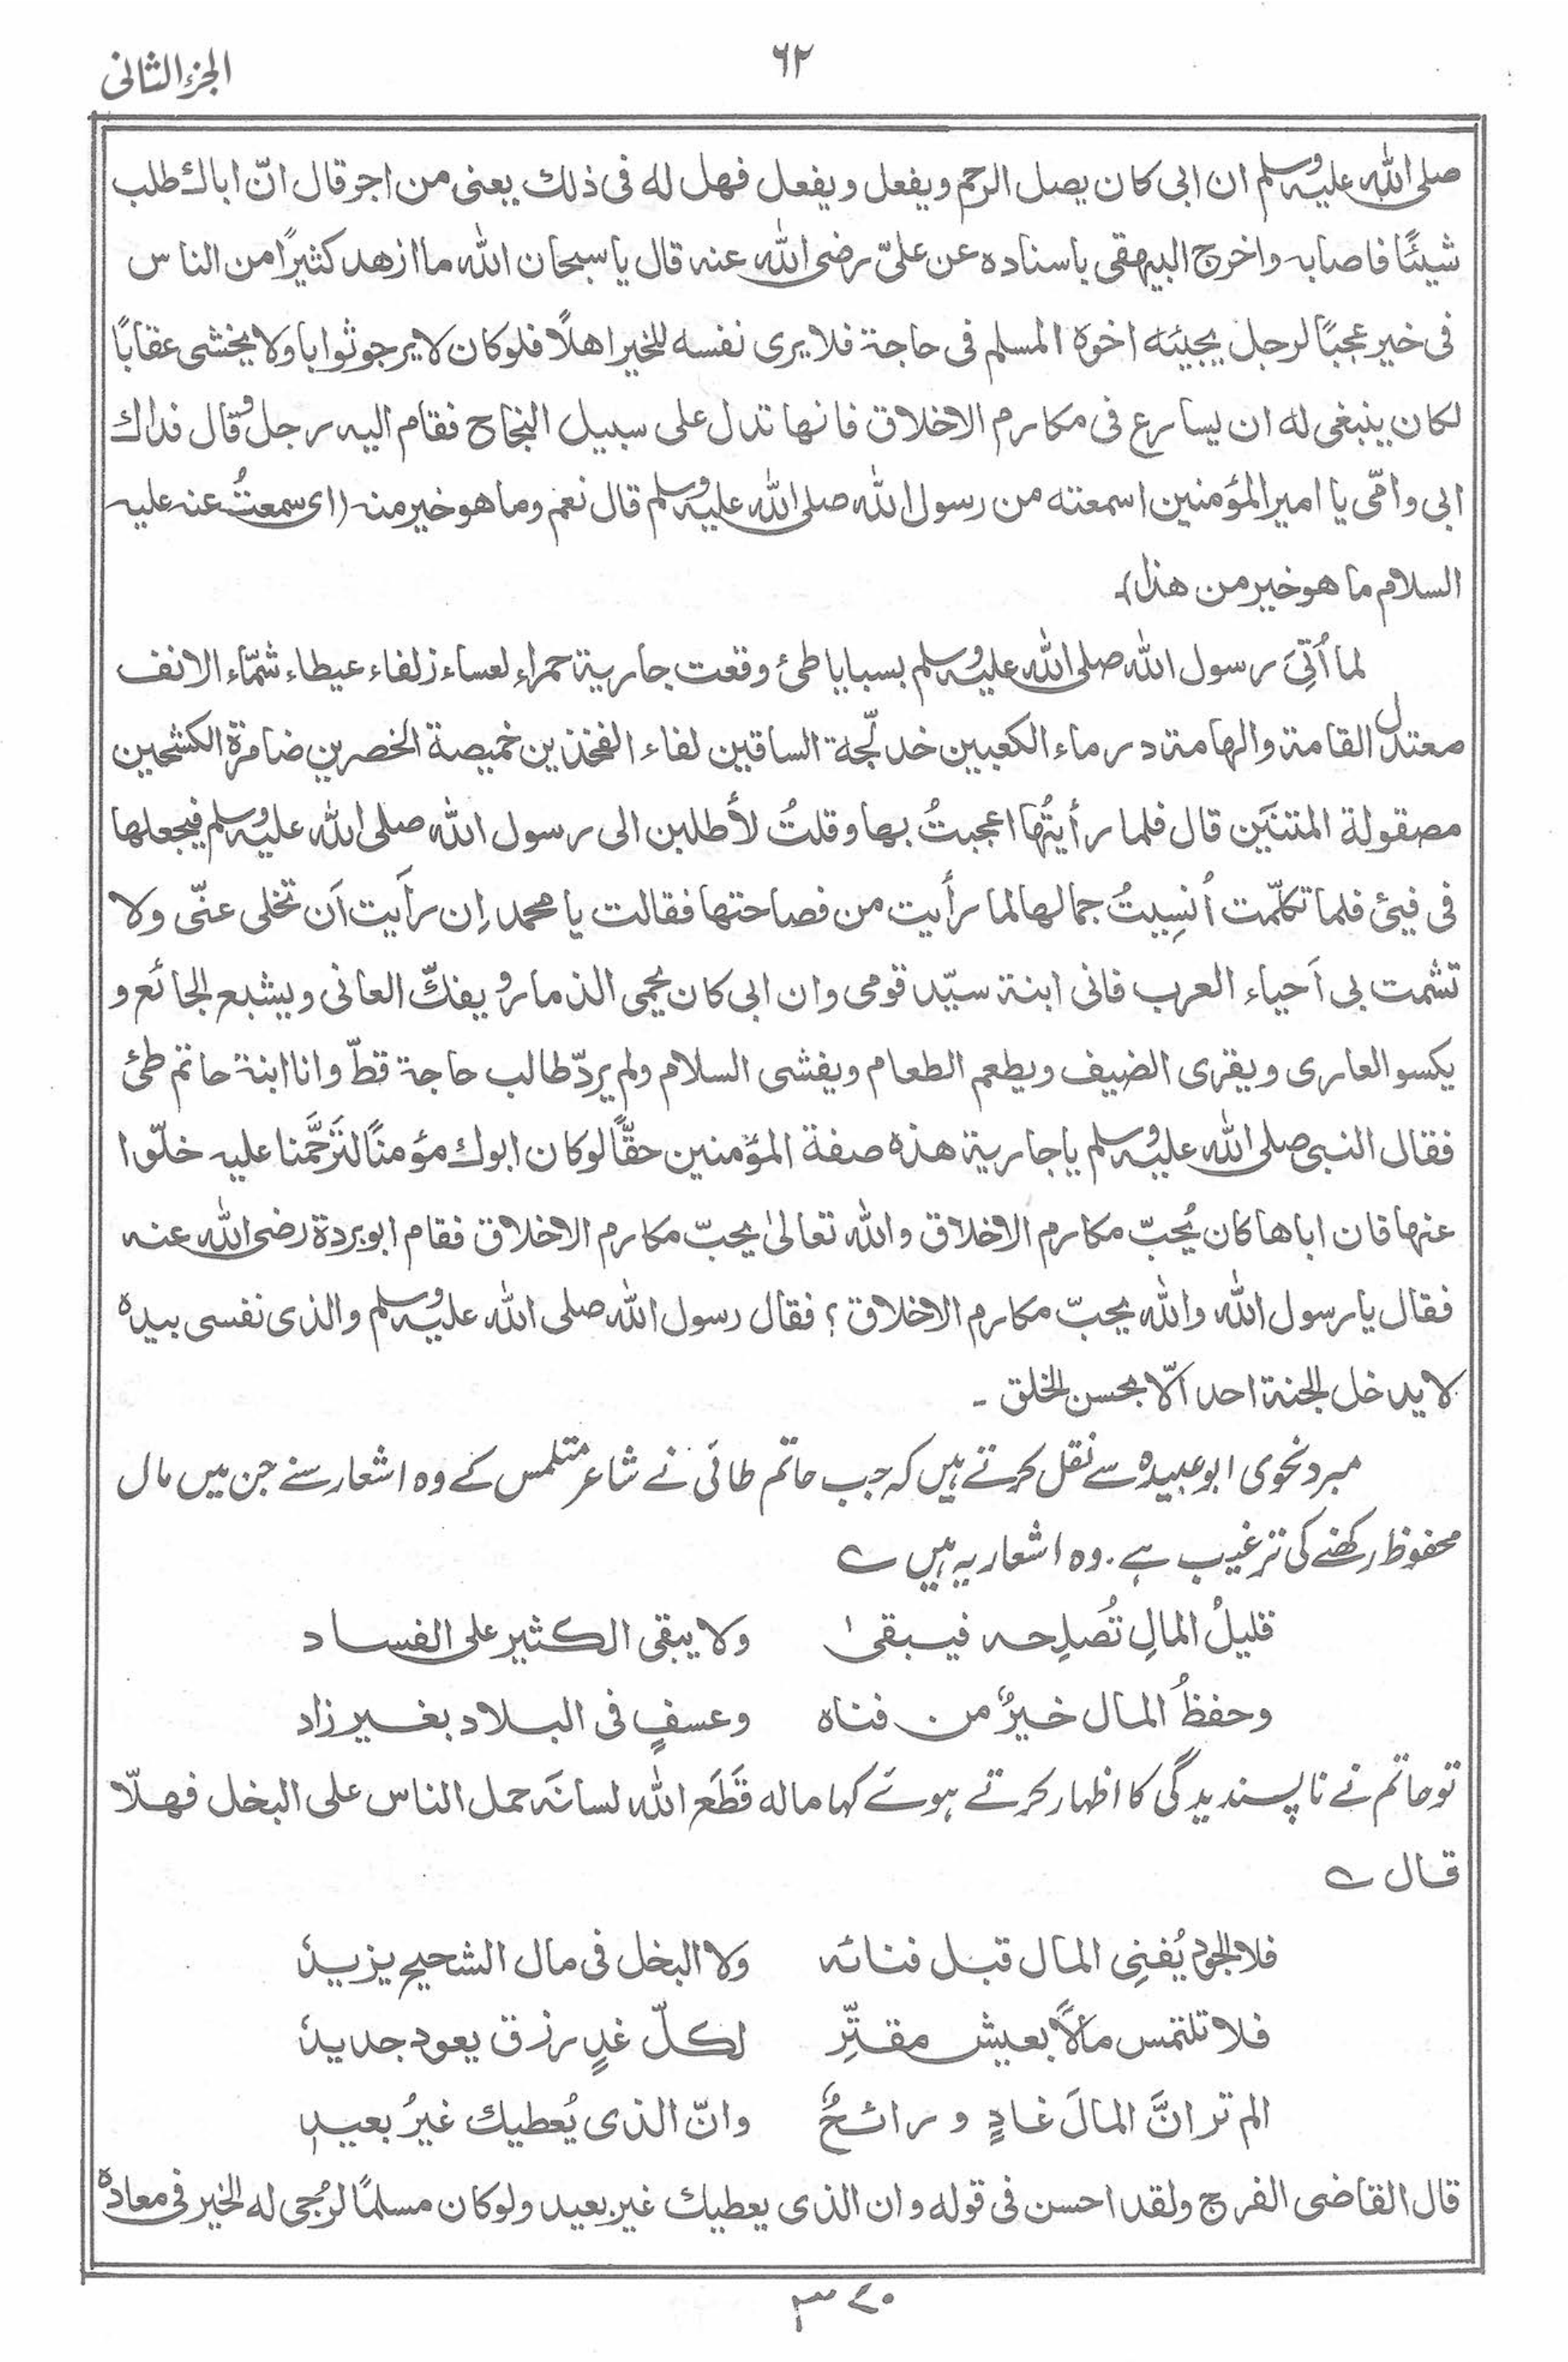 الجزء الثانى
٦٢
صلى الله عليه وسلم ان ابى كان يصل الرحم ويفعل ويفعل فهل له فى ذلك يعنى من اجر قال انّ اباك طلب
شيئًا فاصابه واخرج البيهقى باسناده عن علىّ رضى الله عنه قال يا سبحان الله ما ازهد كثيرًا من الناس
فى خير عجبًا لرجل يجيئه اخوه المسلم فى حاجة فلا يرى نفسه للخير اهلًا فلو كان لا يرجو ثوابا ولا يخشى عقابًا
لكان ينبغى له ان يسارع فى مكارم الاخلاق فانها تدل على سبيل النجاح فقام اليه رجل وقال فداك
ابى وامّى يا امير المؤمنين اسمعته من رسول الله صلى الله عليه وسلم قال نعم وما هو خير منه (اى سمعتُ عنه عليه
السلام ما هو خير من هذا)۔
لما اُتِىَ رسول الله صلى الله عليه وسلم بسبايا طئ وقعت جارية حمراء لعساء زلفاء عيطاء شمّاء الانف
معتدل القامة والهامة درماء الكعبين خدلّجة الساقين لفاء الفخذين خميصة الخصرين ضامرة الكشحين
مصقولة المتنَين قال فلما رأيتُها اعجبتُ بها وقلتُ لأطلبن الى رسول الله صلى الله عليه وسلم فيجعلها
فى فيئ فلما تكلّمت اُنسِيتُ جمالها لما رأيت من فصاحتها فقالت يا محمد اِن رأَيت اَن تخلى عنّى ولا
تشمت بى اَحياء العرب فانى ابنة سيّد قومى وان ابى كان يحمى الذمار و يفكّ العانى ويشبع الجائع و
يكسو العارى ويقرى الضيف ويطعم الطعام ويفشى السلام ولم يردّ طالب حاجة قطّ وانا ابنة حاتم طئ
فقال النبى صلى الله عليه وسلم يا جارية هذه صفة المؤمنين حقًّا لو كان ابوك مؤمنًا لتَرَحَّمنا عليه خلّوا
عنها فان اباها كان يُحبّ مكارم الاخلاق والله تعالىٰ يحبّ مكارم الاخلاق فقام ابو بردة رضى الله عنه
فقال يا رسول الله والله يحبّ مكارم الاخلاق؟ فقال رسول الله صلى الله عليه وسلم والذى نفسى بيده
لا يدخل الجنة احد الّا بحسن الخلق ۔
مبرد نحوی ابوعبیدہ سے نقل کرتے ہیں کہ جب حاتم طائی نے شاعر متلمس کے وہ اشعار سنے جن میں مال
محفوظ رکھنے کی ترغیب ہے۔ وہ اشعار یہ ہیں ؎
قليلُ المالِ تُصلِحه فيبقىٰ ولا يبقى الكثير على الفساد
وحفظُ المال خيرٌ من فناه وعسفٍ فى البلاد بغير زاد
تو حاتم نے ناپسندیدگی کا اظہار کرتے ہوئے کہا ماله قَطَع الله لسانَه حمل الناس على البخل فهلّا
قال ؎
فلا الجود يُفنِى المال قبل فنائه ولا البخل فى مال الشحيح يزيدٗ
فلا تلتمس مالًا بعيش مقتّرِ لكلّ غدٍ رزق يعود جديدٗ
الم تر انَّ المالَ غادٍ و رائحٌ وانّ الذى يُعطيك غيرُ بعيد
قال القاضى الفرج ولقد احسن فى قوله وان الذى يعطيك غير بعيد ولو كان مسلمًا لرُجى له الخير فى معاده